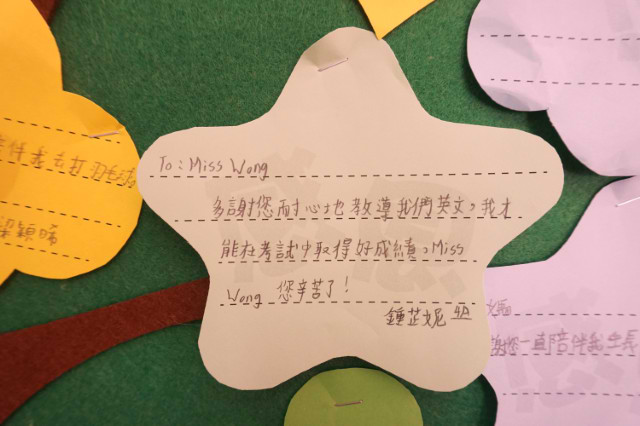 To: Miss Wong
多謝您耐心地教導我們英文。我才
能在考試中取得好成績。Miss
Wong 您辛苦了！
鍾芷妮 4A
伴我去打羽毛球
謝您一直陪伴我生長
感恩